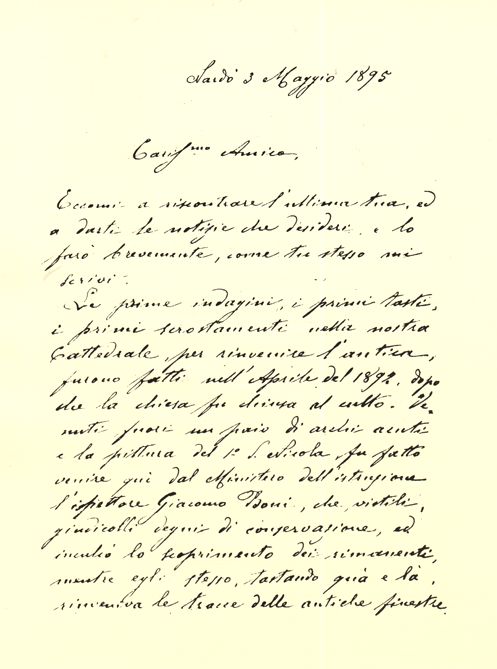 Nardò 3 Maggio 1895
Cariss.mo Amico,
Eccomi a riscontrare l'ultima tua, ed
a darti le notizie che desideri. e lo
farò brevemente, come tu stesso mi
scrivi.
Le prime indagini, i primi tasti,
i primi scrostamenti nella nostra
Cattedrale, per rinvenire l'antica,
furono fatti nell'Aprile del 1892, dopo
che la chiesa fu chiusa al culto. Ve-
nuti fuori un paio di archi acuti
e la pittura del 1° S. Nicola, fu fatto
venire qui dal Ministero dell'istruzione
l'ispettore Giacomo Boni, che, vistili,
giudicolli degni di conservazione, ed
inculcò lo scoprimento dei rimanenti,
mentre egli stesso, tastando quà e là,
rinveniva le tracce delle antiche finestre.